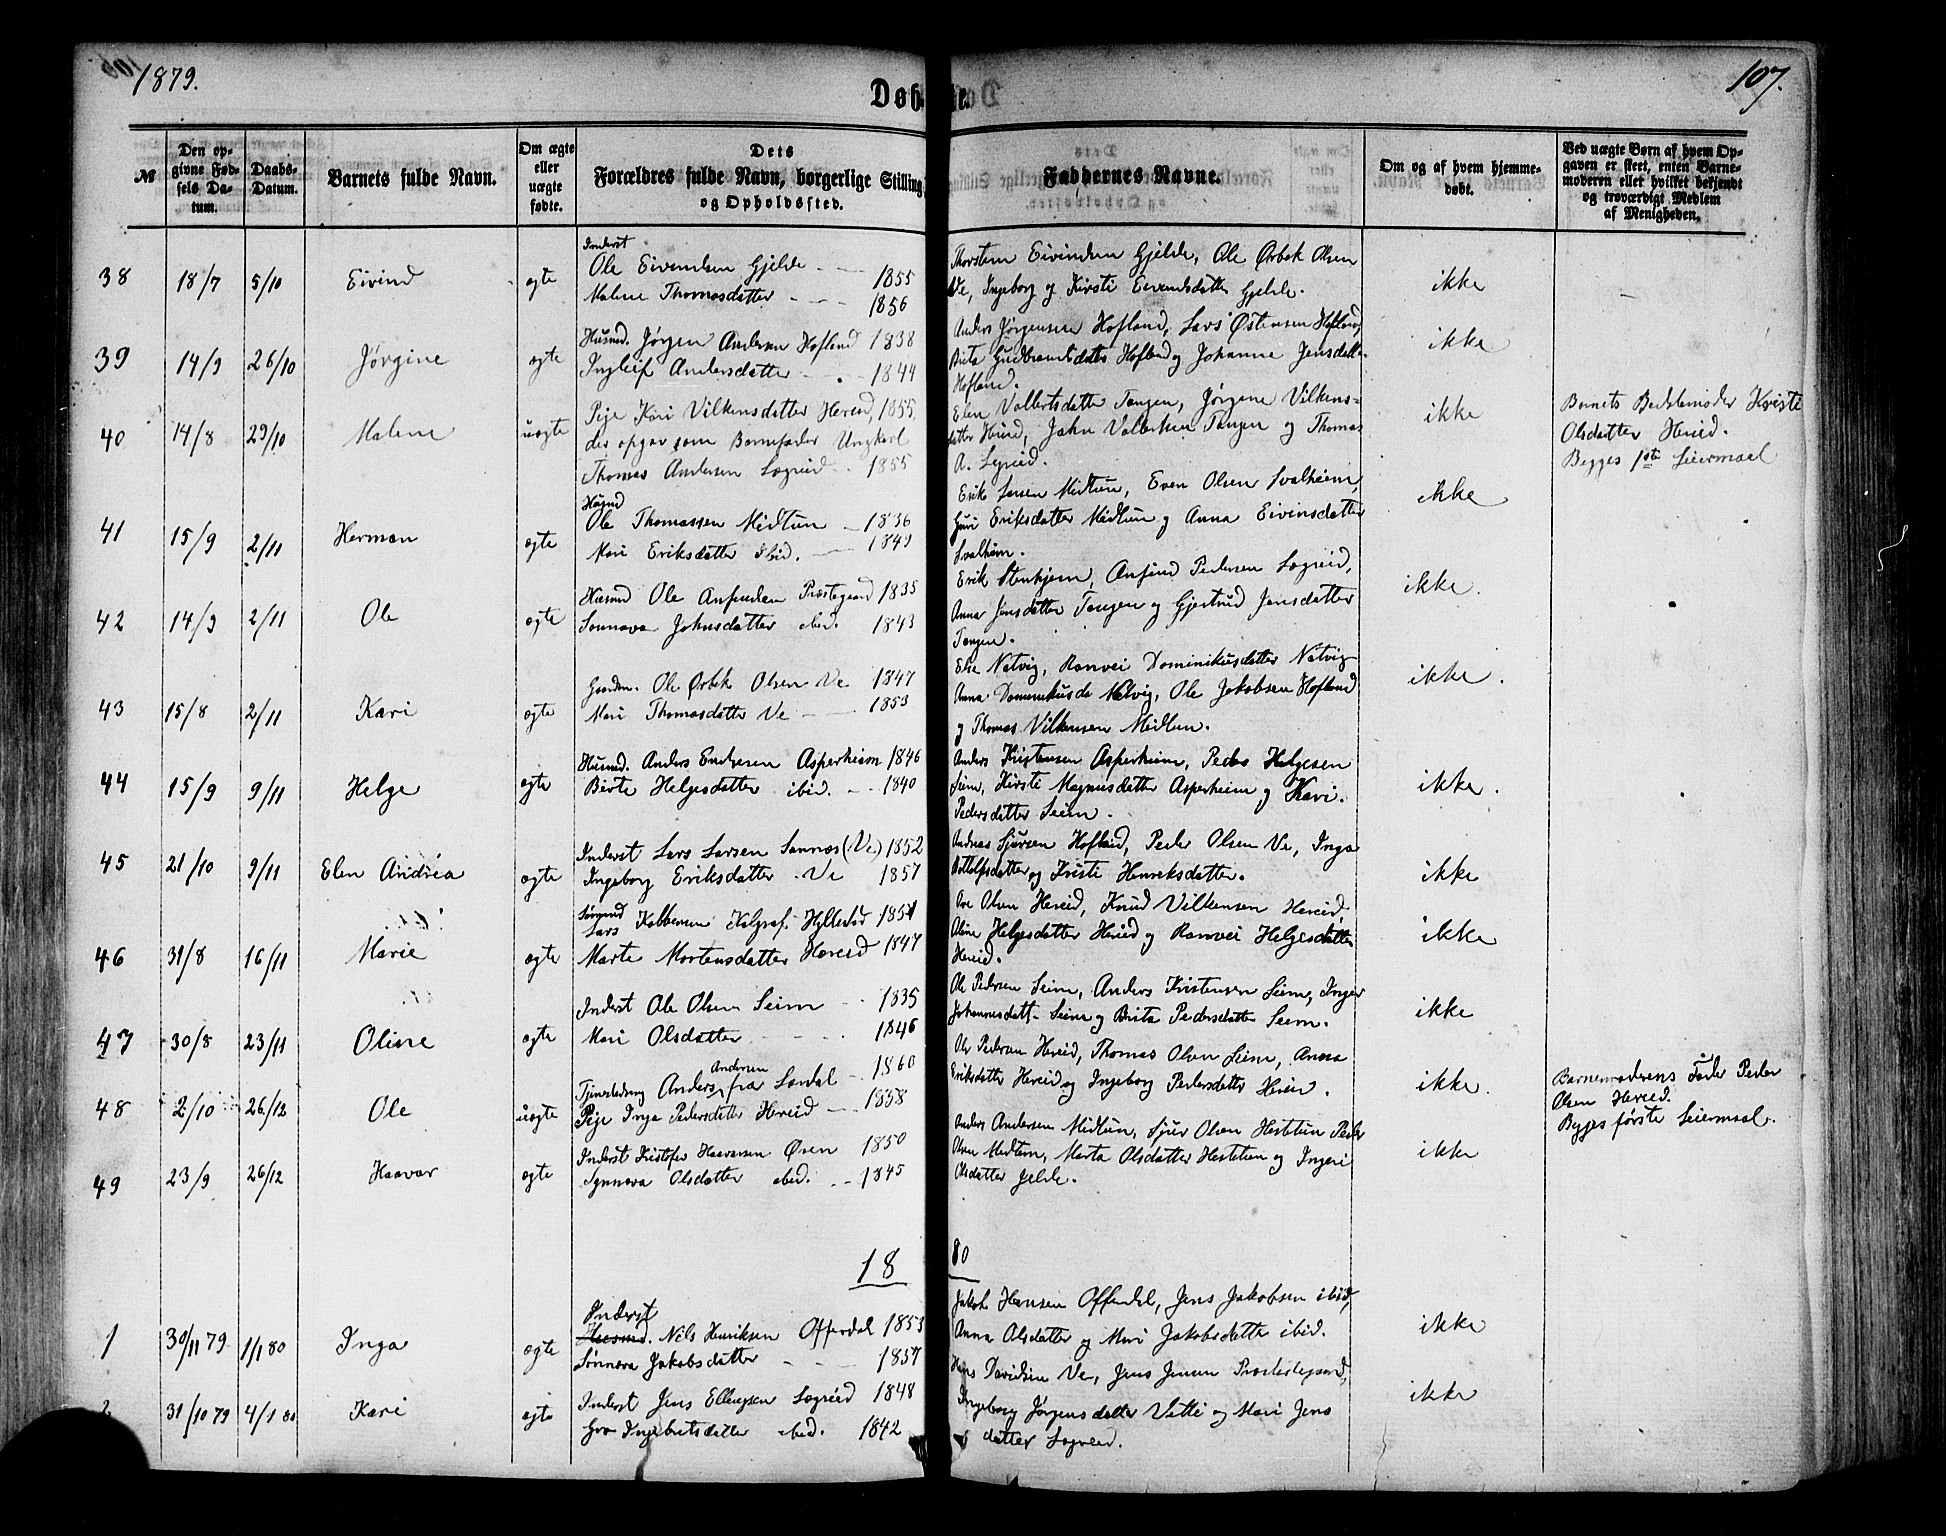 1879.
107.
Døb
te.
№
Den op-
givne Fød-
sels Da-
tum.
Daabs-
Datum.
Barnets fulde Navn.
Om ægte
eller
uægte
fødte.
Dets
Forældres fulde Navn, borgerlige Stilling
og Opholdssted.
Faddernes Navne.
Om og af hvem hjemme-
døbt.
Ved uægte Børn af hvem Op-
gaven er skeet, enten Barne-
moderen eller hvilket bekjendt
og troværdigt Medlem
af Menigheden.
38 18/7 5/10 Eivind ægte
Inderst
Ole Eivendsen Gjelde 1855
Malene Thomasdatter 1856
Thorstein Eivindsen Gjelde, Ole Ørbek Olsen
Ve, Ingeborg og Kirsti Eivendsdatter Gjelde.
ikke
39 14/9 26/10 Jørgine ægte
Husmd. Jørgen Andersen Hofland 1838
Ingleif Andersdatter 1844
Anders Jørgensen Hofland, Lars Østensen Hofland,
Brita Gudbrandsdatter Hofland og Johanne Jensdatter
Hofland.
ikke
40 14/8 29/10 Malene uægte
Pige Kari Vilkensdatter Hereid, 1855,
der opgav som Barnefader Ungkarl
Thomas Andersen Sogreid 1855
Elen Volbertsdatter Tangen, Jørgine Vilkens-
datter Hereid, John Volbertsen Tangen og Thomas
A. Legreid.
ikke
Barnets Bedstemoder Kristi
Olsdatter Hereid.
Begges 1ste Leiermaal
41 15/9 2/11 Herman ægte
Husmd
Ole Thomassen Midtun 1836
Mari Eriksdatter ibid. 1849
Erik Larsen Midtun, Even Olsen Svalheim,
Guri Eriksdatter Midtun og Anna Eivinsdatter
Svalheim.
ikke
42 14/9 2/11 Ole ægte
Husmd Ole Anfindsen Præstegaard 1835
Sønnøva Johnsdatter ibid. 1843
Erik Stenhjem, Anfind Pedersen Sogreid,
Anna Jensdatter Tangen og Gjertrud Jensdatter
Tangen.
ikke.
43 15/8 2/11 Kari ægte
Gaardm. Ole Ørbek Olsen Ve 1847
Mari Thomasdatter Ve 1853
Else Natvig, Ranvei Dominikusdatter Natvig
Anna Dominikusda Natvig, Ole Jakobsen Hofland
og Thomas Vilkensen Midtun.
ikke.
44 15/9 9/11 Helge ægte
Husmd. Anders Endresen Asperheim 1846
Birte Helgesdatter ibid. 1840
Anders Kristensen Asperheim, Peder Helgesen
Seim, Kirsti Magnusdatter Asperheim og Kari.
Pedersdatter Seim.
ikke.
45 21/10 9/11 Elen Andrea ægte
Inderst Lars Larsen Sannæs (Ve) 1852
Ingeborg Eriksdatter Ve 1857
Andreas Sjursen Hofland, Peder Olsen Ve, Inga
Botolfsdatter og Kristi Henriksdatter.
ikke
46 31/8 16/11 Marie ægte
Lars 1851
Marte Mortensdatter Hereid 1847
Ove Olsen Hereid, Knud Vilkensen Hereid,
Oline Helgesdatter Hereid og Ranvei Helgesdatter
Hereid.
ikke
47 30/8 23/11 Oline ægte
Inderst Ole Olsen Seim 1835
Mari Olsdatter 1846
Ole Pedersen Seim, Anders Kristensen Seim, Inger
Johannesdatt. Seim og Brita Pedersdatter Seim.
ikke
48 2/10 26/12 Ole uægte
Andersen
Tjenestedreng Anders fra Lærdal 1860
Pige Inga Pedersdatter Hereid 1858
Ole Pedersen Hereid, Thomas Olsen Seim, Anna
Eriksdatter Hereid og Ingeborg Pedersdatter Hereid.
ikke.
Barnemoderens Fader Peder
Olsen Hereid.
Begges første Leiermaal.
49 23/9 26/12 Haavar ægte
Inderst Kristofer Haavarsen Øren 1850
Synneva Olsdatter ibid. 1845
Anders Andersen Midtun, Sjur Olsen Hestetun Peder
Olsen Midtun, Marta Olsdatter Hestetun og Ingeri
Olsdatter Gjelde.
ikke
18
80
1 30/11 79 1/1 80 Inga ægte
Inderst
Husmd. Nils Henriksen Offerdal 1853
Sønneva Jakobsdatter 1857
Jakob Hansen Offerdal, Jens Jakobsen ibid,
Anna Olsdatter og Mari Jakobsdatter ibid.
ikke
2 31/10 79 4/1 80 Kari ægte
Inderst Jens Ellingsen Sogreid 1848
Gro Ingebretsdatter ibid. 1842
Hans Davidsen Ve, Jens Jensen Præstegaard,
Ingeborg Jørgensdatter Vetti og Mari Jens
datter Sogreid.
ikke